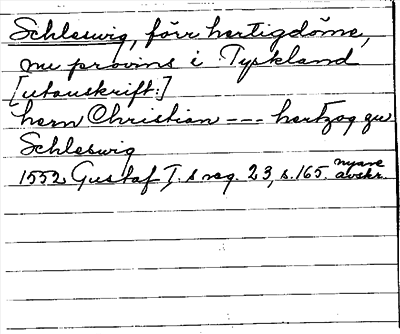 Schleswig, förr hertigdöme,
nu provins i Tyskland
[utanskrift:]
hern Christian --- hertzog zu
Schleswig
1552 Gustaf I.s reg. 23, s. 165. nyare avskr.